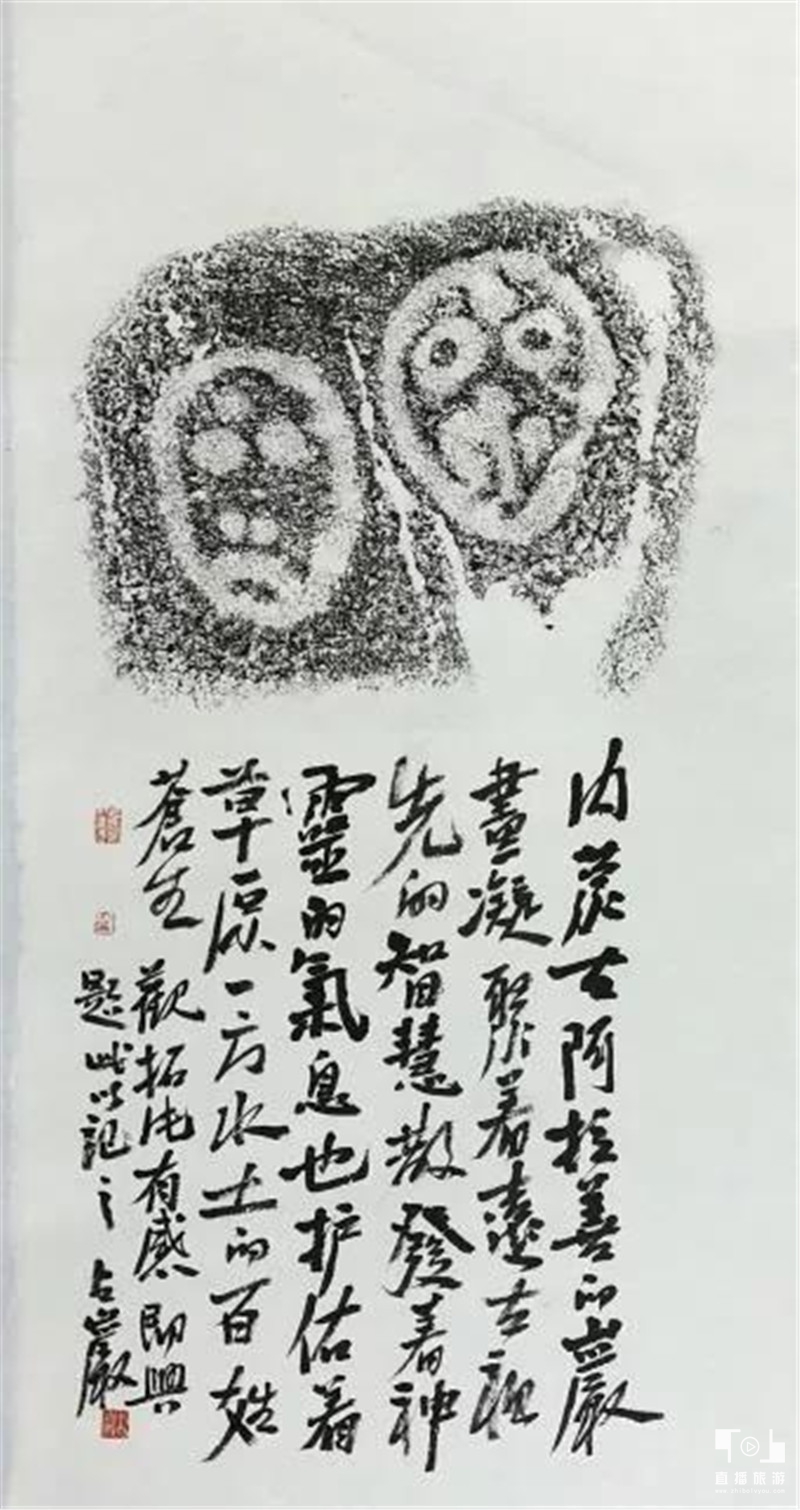 内蒙古阿拉善的巖
畫凝聚着遠古祖
先的智慧散發着神
靈的氣息也护佑着
草原一方水土的百姓
蒼生
觀拓片有感即興
題此以記之 占巖
直播旅游